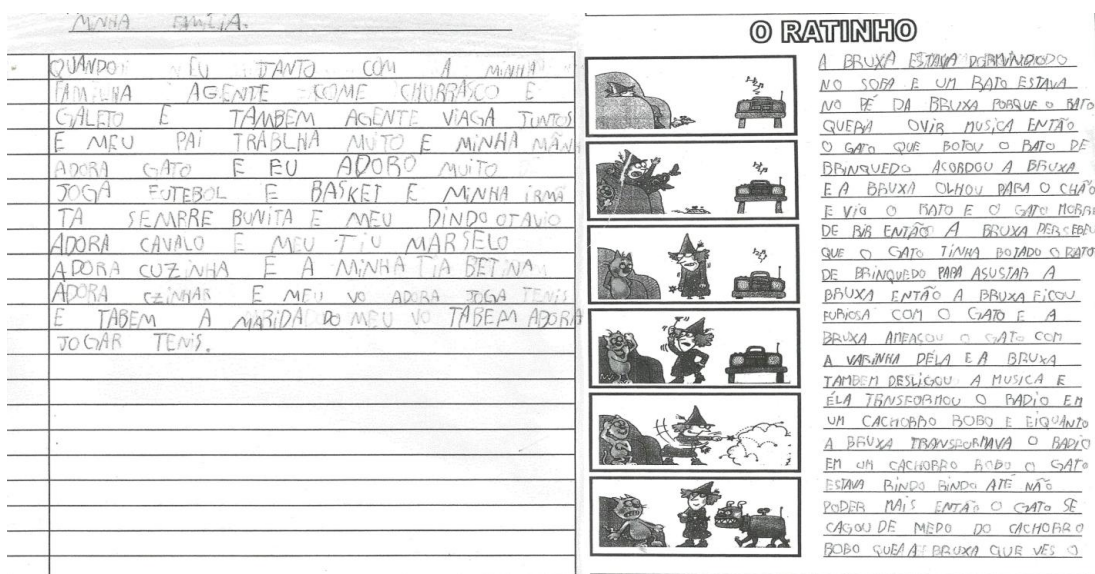 MINHA FAMILIA.
QUANDO EU JANTO COM A MINHA
FAMILHA AGENTE COME CHURRASCO E
GALETO E TAMBEM AGENTE VIAGA JUNTOS
E MEU PAI TRABLHA MUITO E MINHA MÃN
ADORA GATO E EU ADORO MUITO
JOGA FUTEBOL E BASKET E MINHA IRMÃ
TA SEMPRE BUNITA E MEU DINDO OTAVIO
ADORA CAVALO E MEU TIU MARSELO
ADORA CUZINHA E A MINHA TIA BETINA
ADORA CZINHAR E MEU VO ADORA JOGA TENIS
E TABEM A MARIDA DO MEU VO TABEM ADORA
JOGAR TENIS.
O RATINHO
A BRUXA ESTAVA DORMINDODO
NO SOFA E UM RATO ESTAVA
NO PÉ DA BRUXA PORQUE O RATO
QUERIA OVIR MUSICA ENTÃO
O GATO QUE BOTOU O RATO DE
BRINQUEDO ACORDOU A BRUXA
E A BRUXA OLHOU PARA O CHÃO
E VIO O RATO E O GATO MORRE
DE RIR ENTÃO A BRUXA PERSEBEU
QUE O GATO TINHA BOTADO O RATO
DE BRINQUEDO PARA ASUSTAR A
BRUXA ENTÃO A BRUXA FICOU
FURIOSA COM O GATO E A
BRUXA AMEAÇOU O GATO COM
A VARINHA DÉLA E A BRUXA
TAMBEM DESLIGOU A MUSICA E
ÉLA TRNSFORMOU O RADIO EM
UM CACHORRO BOBO E EIQUANTO
A BRUXA TRANSFORMAVA O RADIO
EM UM CACHORRO BOBO O GATO
ESTAVA RINDO RINDO ATÉ NÃO
PODER MAIS ENTÃO O GATO SE
CAGOU DE MEDO DO CACHORRO
BOBO A BRUXA QUE VES O